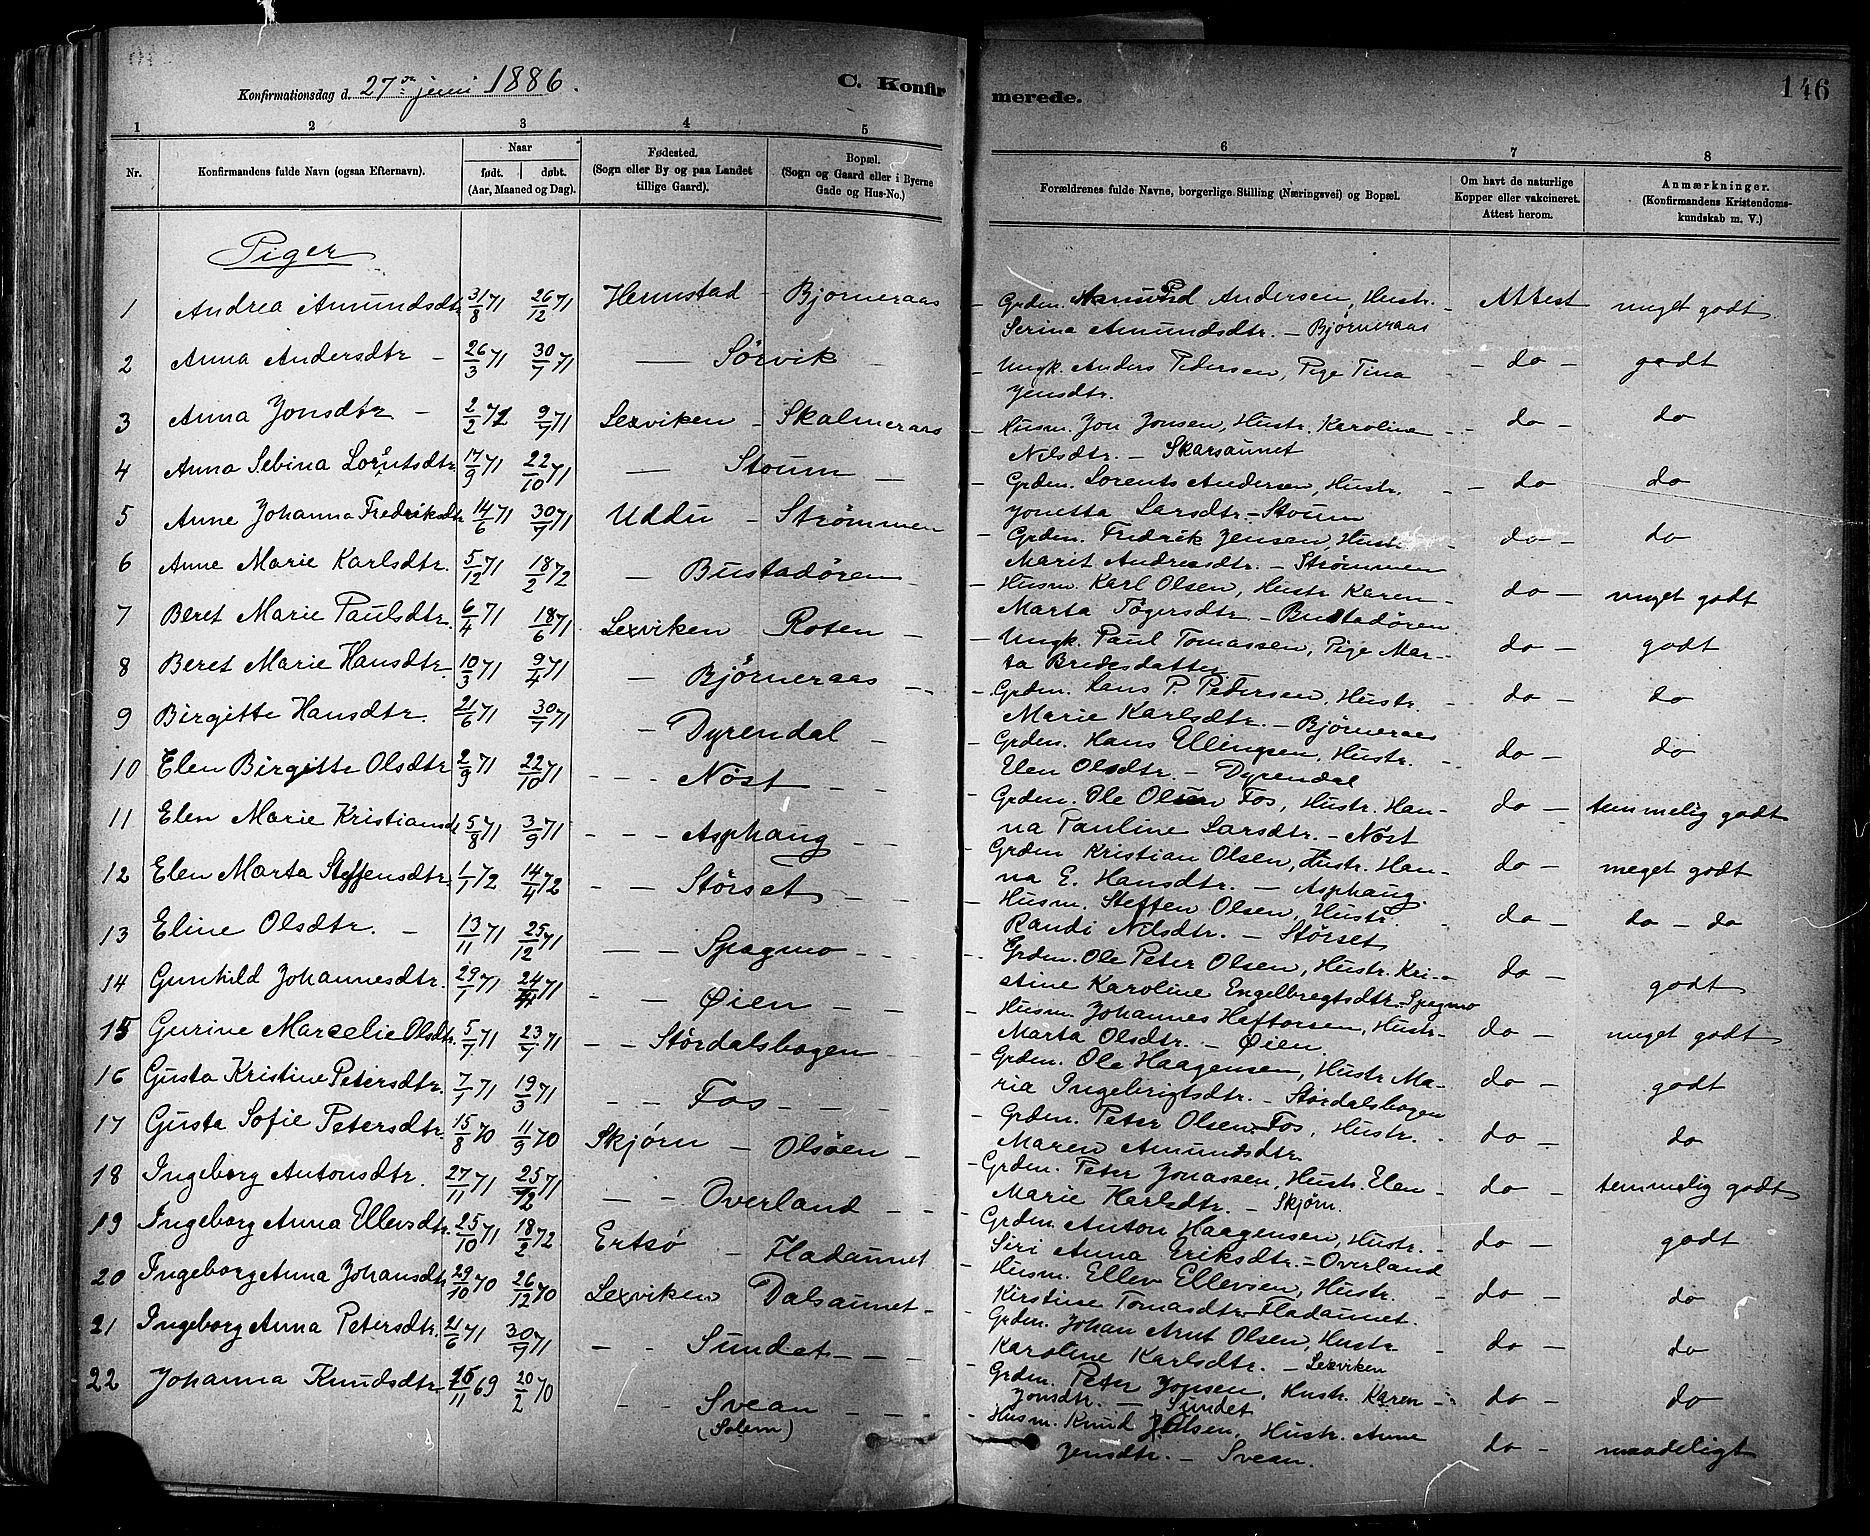 Konfirmationsdag d. 27de juni 1886.
C. Konfirmerede.
146
1 2 3 4 5 6 7 8
Nr.
Konfirmandens fulde Navn (ogsaa Efternavn).
Naar
født. døbt.
(Aar, Maaned og Dag).
Fødested.
(Sogn eller By og paa Landet
tillige Gaard).
Bopæl.
(Sogn og Gaard eller i Byerne
Gade og Hus-No.)
Forældrenes fulde Navne, borgerlige Stilling (Næringsvei) og Bopæl.
Om havt de naturlige
Kopper eller vakcineret.
Attest herom.
Anmærkninger.
(Konfirmandens Kristendoms-
kundskab m. V.)
Piger
1 Andrea Amundsdtr 31/8 71 26/12 71 Hemstad - Bjørneraas - Grdm. Amund Andersen, Hustr. - Attest meget godt
Serina Amundsdtr. - Bjørneraas
2 Anna Andersdtr - 26/3 71 30/7 71 — Sörvik - - Ungk. Anders Pedersen, Pige Tina - do - godt
Jensdtr.
3 Anna Jonsdtr - 2/2 71 9/7 71 Lexviken - Skalmeraas - Husm. Jon Jonsen, Hustr. Karoline - do - do
Nilsdtr. - Skarsaunet
4 Anna Sebina Lorentsdtr 17/9 71 22/10 71 — Stoum — - Grdm. Lorents Andersen, Hustr. - do - do
Jonetta Larsdtr - Stoum
5 Anne Johanna Fredriksdtr 14/6 71 30/7 71 Uddu - Strömmen - Grdm. Fredrik Jensen, Hustr. - do - do
Marit Andreasdtr. - Strømmen
6 Anne Marie Karlsdtr. 5/12 71 18/2 72 - Bustadören - - Husm. Karl Olsen, Hustr. Karen - do - meget godt
Marta Tögersdtr - Bustadören
7 Beret Marie Paulsdtr. 6/4 71 18/6 71 Lexviken Roten - - Ungk. Paul Tomassen, Pige Mar- do - godt
ta Bredesdatter
8 Beret Marie Hansdtr. 10/3 71 9/4 71 - Bjørneraas - - Grdm. Hans P. Petersen, Hustr. - do - do
Marie Karlsdtr. - Bjørneraas
9 Birgitte Hansdtr. 21/6 71 30/7 71 - Dyrendal - - Grdm. Hans Ellingsen, Hustr. - do - do
Elen Olsdtr. - Dyrendal
10 Elen Birgitte Olsdtr 2/9 71 22/10 71 - - Nöst - - - Grdm. Ole Olsen Fos, Hustr. Han- do - temmelig godt
na Pauline Larsdtr. - Nöst
11 Elen Marie Kristiansdtr 5/8 71 3/9 71 - - - Asphaug - - - Grdm. Kristian Olsen, Hustr. Han- do - meget godt
na E. Hansdtr. - Asphaug.
12 Elen Marta Steffensdtr. 1/1 72 14/4 72 - - Störset - - - Husm. Steffen Olsen, Hustr. - do - do - do
Randi Nilsdtr. - Störset
13 Eline Olsdtr. - 13/11 71 25/12 71 - - Spagmo - - - Grdm. Ole Peter Olsen, Hustr. Kri- do - godt
stine Karoline Engelbregtsdtr - Spagmo
14 Gunhild Johannesdtr. 29/1 71 24/4 71 - - Øien - - - Husm. Johannes Heftorsen, Hustr. do - meget godt
Marta Olsdtr. - Øien
15 Gurine Marcelie Olsdtr. 5/7 71 23/7 71 - - Stördalsbogen - Grdm. Ole Haagensen, Hustr. Ma- do - godt
ria Ingebrigtsdtr. - Stördalsbogen
16 Gusta Kristine Petersdtr. 7/1 71 19/3 71 - - Fos - - - - Grdm. Peter Olsen Fos, Hustr. - do - do
Maren Amundsdtr.
17 Gusta Sofie Petersdtr. 15/8 70 11/9 70 Skjørn - Olsöen - - Grdm. Peter Jonassen, Hustr. Elen - do - temmelig godt
Marie Karlsdtr. - Skjørn.
18 Ingeborg Antonsdtr. 27/11 71 25/12 71 - - Overland - - - Grdm. Anton Haagensen, Hustr. - do - godt
Siri Anna Eriksdtr. - Overland
19 Ingeborg Anna Ellevsdtr. 25/10 71 18/2 72 Ertsö - Fladaunet - Husm. Ellev Ellevsen, Hustr. - do - do
Kirstine Tomasdtr - Fladaunet.
20 Ingeborg Anna Johansdtr. 29/10 70 26/12 70 Lexviken Dalsaunet - Grdm. Johan Arnt Olsen, Hustr - do - do
Karoline Karlsdtr. - Lexviken
21 Ingeborg Anna Petersdtr. 21/6 71 30/7 71 - - Sundet - - - - Grdm. Peter Jonsen, Hustr. Karen - do - do
Jonsdtr. - Sundet
22 Johanna Knudsdtr. 15/11 69 20/2 70 - - Svean - - - Husm. Knud Jensen, Hustr. Anne do - maadeligt
(Solem) Jensdtr. - Svean.